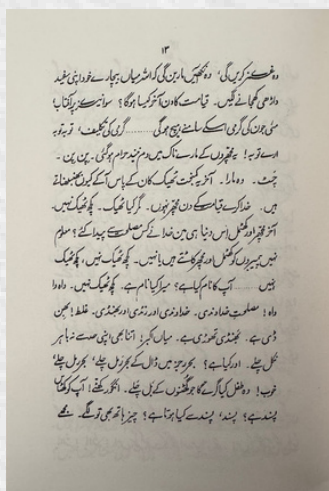 ۱۳
وہ غمزے کریں گی، وہ نکھیں ماریں گی کہ اللہ میاں بیچارے خود اپنی سفید
داڑھی کھجانے لگیں۔ قیامت کا دن آخر کیسا ہوگا؟ سوا نیزے پر آفتاب
مئی جون کی گرمی اسکے سامنے ہیچ ہوگی........ گرمی کی تکلیف، توبہ توبہ
ارے توبہ! یہ مچھروں کے مارے ناک میں دم نیند حرام ہوگئی۔ پن پن۔
چٹ۔ وہ مارا۔ آخر یہ کمبخت ٹھیک کان کے پاس آکے کیوں بھنبھناتے
ہیں۔ خدا کرے قیامت کے دن مچھر نہوں۔ مگر کیا ٹھیک۔ کچھ ٹھیک نہیں۔
آخر مچھر اور کھٹمل اس دنیا ہی میں خدا نے کس مصلحت سے پیدا کئے؟ معلوم
نہیں پیمبروں کو کھٹمل اور مچھر کاٹتے ہیں یا نہیں۔ کچھ ٹھیک نہیں، کچھ ٹھیک
نہیں........ آپ کا نام کیا ہے؟ میرا کیا نام ہے۔ کچھ ٹھیک نہیں۔ واہ وا
واہ! مصلحتِ خداوندی۔ خداوندی اور رنڈی اور بھنڈی۔ غلط! بھن
ڈی ہے۔ بھنڈی تھوڑی ہے۔ میاں اکبر! اتنا بھی اپنی حد سے نہ باہر
نکل چلئے۔ اور کیا ہے؟ بحر رجز میں ڈال کے بحر رمل چلے، بحر رمل چلے،
خوب! وہ طفل کیا گرے گا جو گھٹنوں کے بل چلے۔ انگور کھٹے! آپ کو کھٹاس
پسند ہے؟ پسند، پسند سے کیا ہوتا ہے؟ چیز ہاتھ بھی تو لگے۔ مجھے